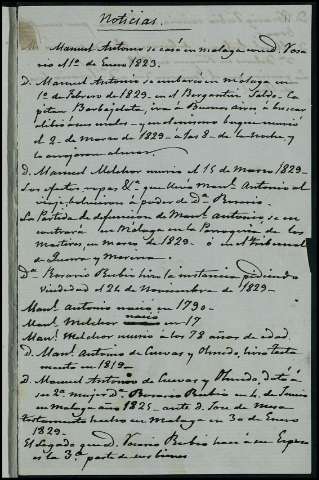 Noticias.
Manuel Antonio se casó en Malaga con D. Rosa
rio el 1º de Enero 1823.
D. Manuel Antonio se embarcó en Malaga en
1º de Febrero de 1829 en el Bergantin Saldo. Ca
pitan Barbajelata, iva á Buenos aires á buscar
murió
el 2 de Marzo de 1829 á las 8 de la noche y
lo arrojaron al mar.
D. Manuel Melchor murio el 15 de Marzo 1829
Los efectos, ropas &ª que llevó Manl. Antonio al
viaje, bolvieron á poder de Dª Rosario.
La Partida de defuncion de Manl. Antonio, se en
contrará en Malaga en la Parroquia de los
Martires, en Marzo de 1829 ó en el tribunal
de Guerra y Marina.
Dª Rosario Rubio hizo la instancia pidiendo
viudedad el 24 de Noviembre de 1829
Manl. Antonio nació en 1790
Manl. Melchor nació en 17
Manl. Melchor murió á los 78 años de edad.
D. Manl. Antonio de Cuevas y Olmedo, hizo testa
mento en 1819
D. Manuel Antonio de Cuevas y Olmedo, dotó á
su 2ª mujer Dª Rosario Rubio en 4 de Junio
en Malaga año 1825 ante D. de Mesa
testamento hecho en Malaga en 30 de Enero
1829.
El Legado que D. Rosario Rubio hace á su Esposo
es la 3ª parte de sus bienes